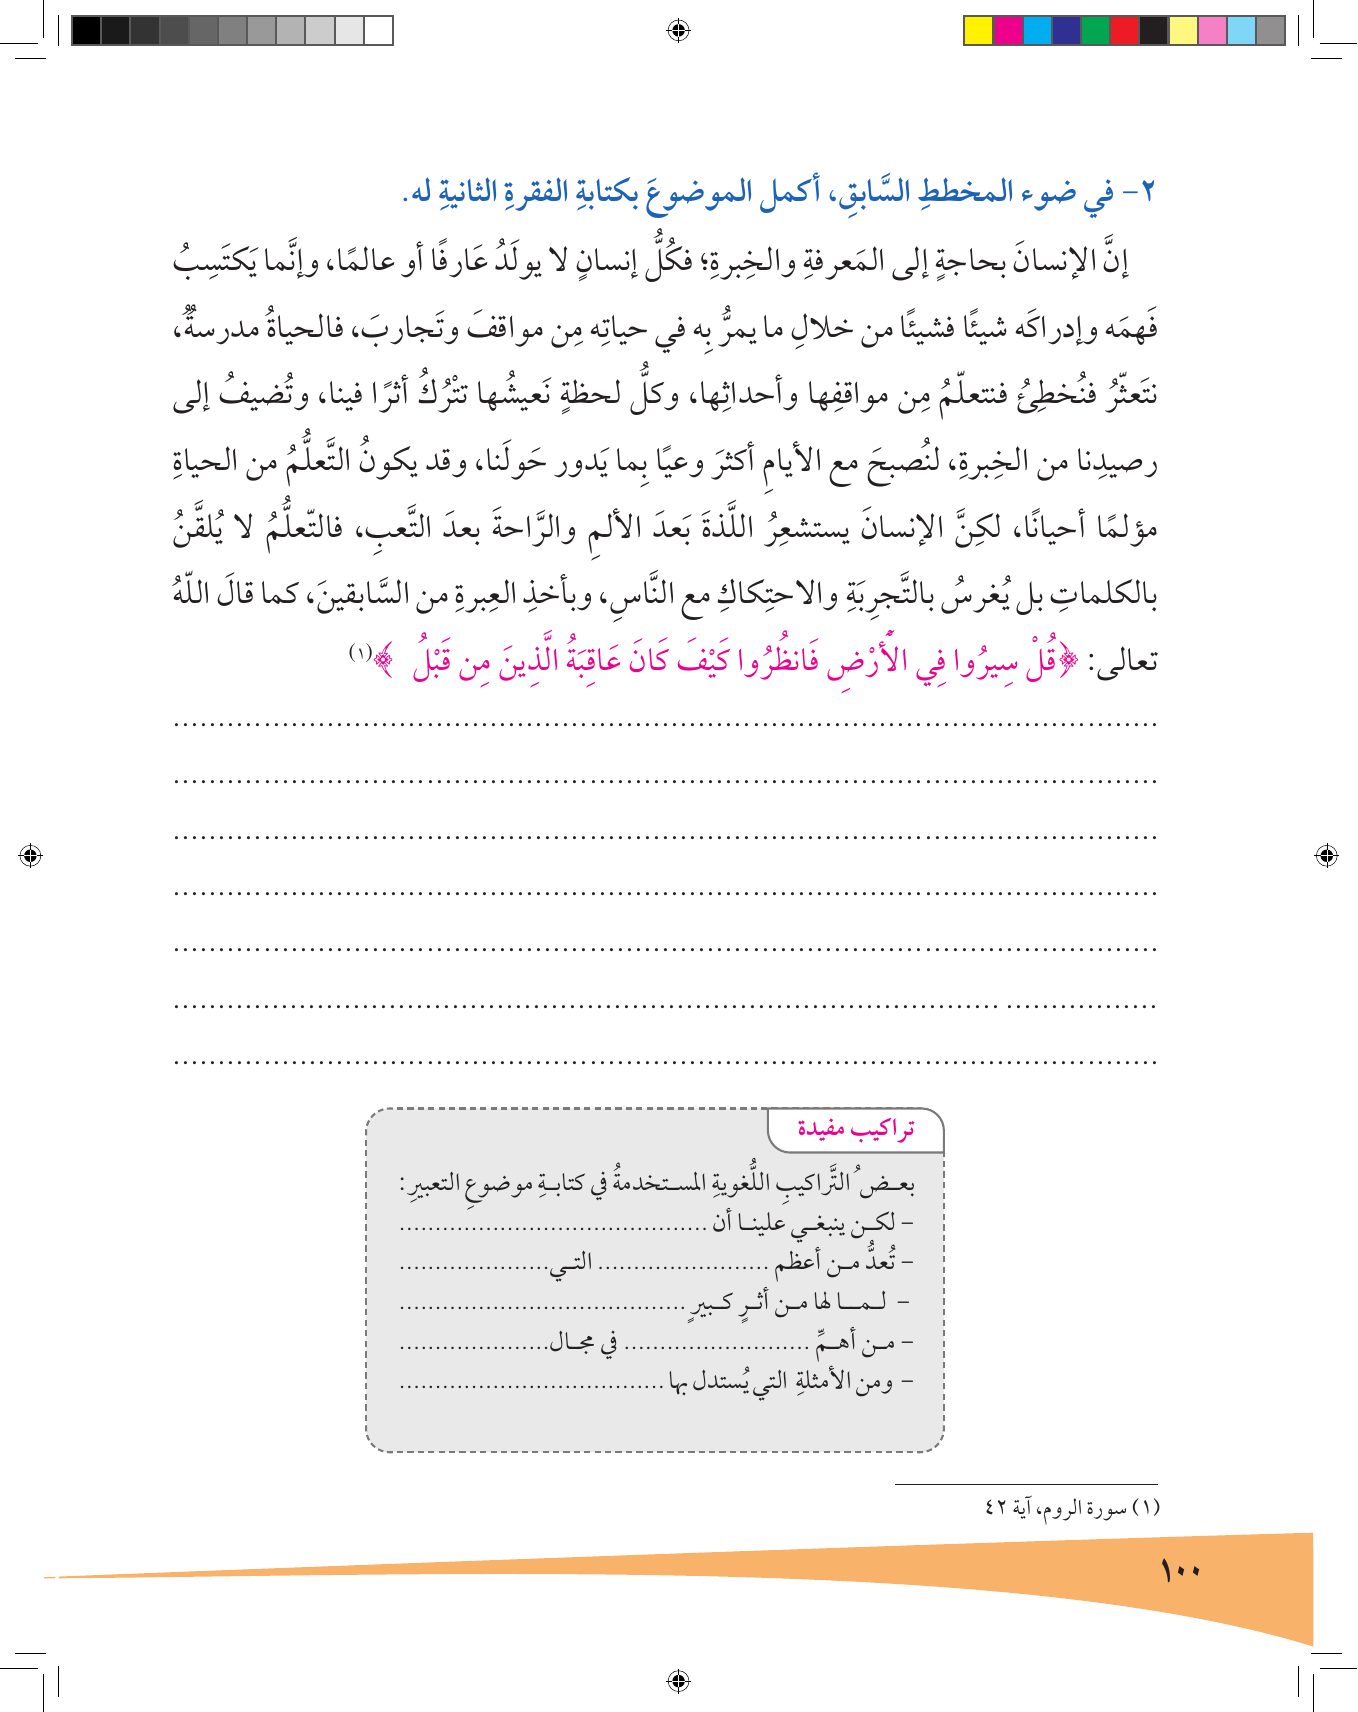 ٢- في ضوء المخططِ السَّابقِ، أكمل الموضوعَ بكتابةِ الفقرةِ الثانيةِ له.
إنَّ الإنسانَ بحاجةٍ إلى المَعرفةِ والخِبرةِ؛ فكُلُّ إنسانٍ لا يولَدُ عَارفًا أو عالمًا، وإنَّما يَكتَسِبُ
فَهمَه وإدراكَه شيئًا فشيئًا من خلالِ ما يمرُّ بِه في حياتِه مِن مواقفَ وتَجاربَ، فالحياةُ مدرسةٌ،
نتَعثّرُ فنُخطِئُ فنتعلّمُ مِن مواقفِها وأحداثِها، وكلُّ لحظةٍ نَعيشُها تتْرُكُ أثرًا فينا، وتُضيفُ إلى
رصيدِنا من الخِبرةِ، لنُصبحَ مع الأيامِ أكثرَ وعيًا بِما يَدور حَولَنا، وقد يكونُ التَّعلُّمُ من الحياةِ
مؤلمًا أحيانًا، لكِنَّ الإنسانَ يستشعِرُ اللَّذةَ بَعدَ الألمِ والرَّاحةَ بعدَ التَّعبِ، فالتّعلُّمُ لا يُلقَّنُ
بالكلماتِ بل يُغرسُ بالتَّجرِبَةِ والاحتِكاكِ مع النَّاسِ، وبأخذِ العِبرةِ من السَّابقينَ، كما قالَ اللّهُ
تعالى: ﴿قُلْ سِيرُوا فِي الْأَرْضِ فَانظُرُوا كَيْفَ كَانَ عَاقِبَةُ الَّذِينَ مِن قَبْلُ ﴾(١)
........................................................................
........................................................................
........................................................................
........................................................................
........................................................................
........................................................................
........................................................................
تراكيب مفيدة
بعضُ التَّراكيبِ اللُّغويةِ المستخدمةُ في كتابةِ موضوعِ التعبيرِ:
- لكن ينبغي علينا أن ...........................................
- تُعدُّ من أعظم ........................ التي.....................
- لـمـا لها من أثرٍ كبيرٍ ........................................
- من أهمِّ .......................... في مجال.....................
- ومن الأمثلةِ التي يُستدل بها .....................................
(١) سورة الروم، آية ٤٢
١٠٠